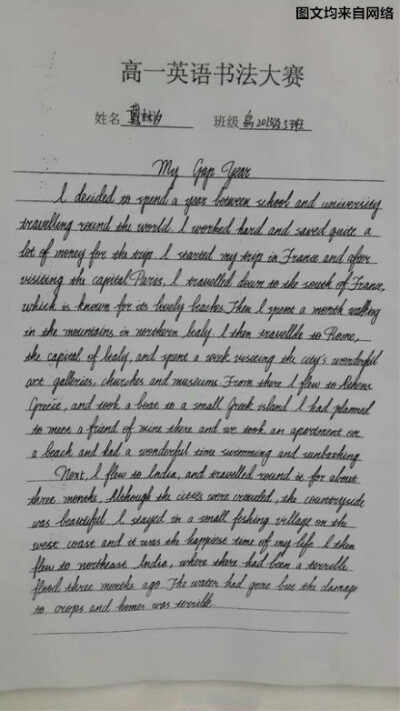 图文均来自网络
高一英语书法大赛
姓名 戴 班级 高2013级5班
My Gap Year
I decided to spend a year between school and university
travelling round the world. I worked hard and saved quite a
lot of money for the trip. I started my trip in France and after
visiting the capital Paris, I travelled down to the south of France,
which is known for its lovely beaches. Then I spent a month walking
in the mountains in northern Italy. I then travellde to Rome,
the capital of Italy, and spent a week visiting the city's wonderful
art galleries, churches and museums. From there I flew to Athens
Greece, and took a boat to a small Greek island I had planned
to meet a friend of mine there and we took an apartment on
a beach and had a wonderful time swimming and sunbathing.
Next, I flew to India, and travelled round it for about
three months. Although the cities were crowded, the countryside
was beautiful I stayed in a small fishing village on the
west coast and it was the happiest time of my life. I then
flew to northeast India, where there had been a terrible
flood three months ago. The water had gone but the damage
to crops and homes was terrible.